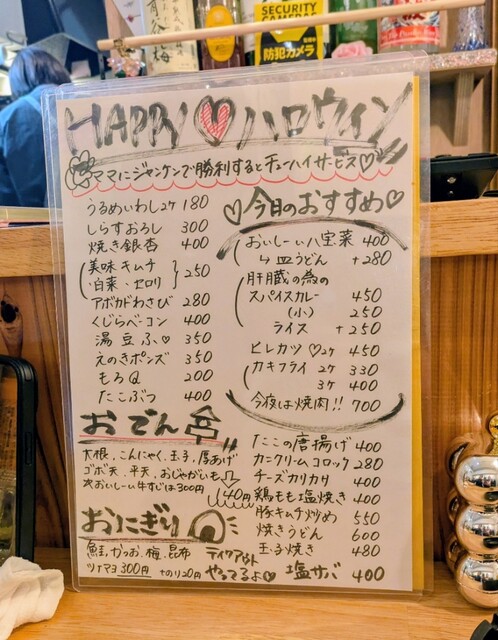 SECURITY
CAMERAS
防犯カメラ
HAPPY♡ハロウィン
ママにジャンケンで勝利するとチューハイサービス♡
うるめいわし2ケ 180
しらすおろし 300
焼き銀杏 400
美味キムチ
白菜・セロリ 250
アボカドわさび 280
くじらベーコン 400
湯豆ふ♡ 350
えのきポンズ 350
もろQ 200
たこぶつ 400
おでん
大根、こんにゃく、玉子、厚あげ
ゴボ天、平天、おじゃがいも
次おいしーい牛すじは300円
140円
おにぎり
鮭、かつお、梅、昆布
ツナマヨ 300円 +のり20円
テイクアウト
やってるよ♡
♡今日のおすすめ♡
おいしーい八宝菜 400
↳皿うどん +280
肝臓の為の
スパイスカレー 450
(小) 250
ライス +250
ヒレカツ♡2ケ 450
カキフライ 2ケ 330
3ケ 400
今夜は焼肉!! 700
たこの唐揚げ 400
カニクリームコロッケ 280
チーズカリカリ 400
鶏もも塩焼き 400
豚キムチ炒め 550
焼きうどん 600
玉子焼き 480
塩サバ 400